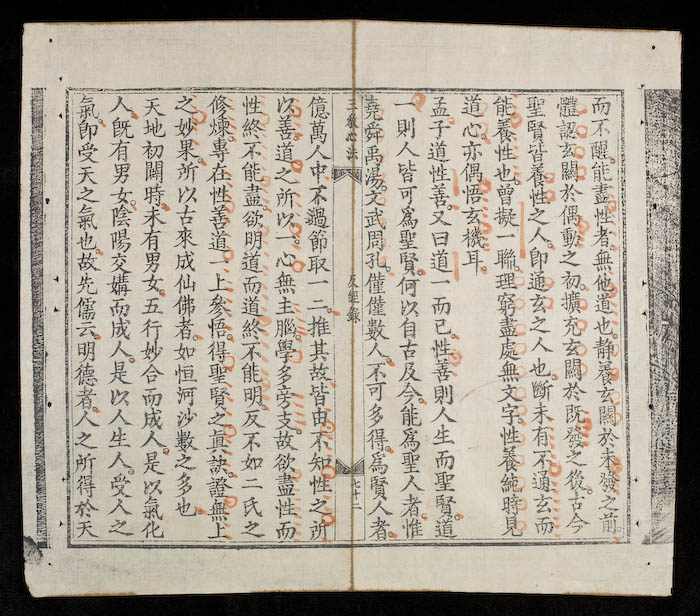 而不醒。能盡性者。無他道也。靜養玄關於未發之前
體認玄關於偶動之初。擴充玄關於既發之後。古今
聖賢皆養性之人。即通玄之人也。斷未有不通玄而
能養性也。曾擬一聯。理窮盡處無文字。性養純時見
道心。亦偶悟玄機耳。
孟子道性善。又曰道一而已。性善則人生而聖賢。道
一則人皆可為聖賢。何以自古及今。能為聖人者。惟
堯舜禹湯。文武周孔。僅僅數人。不可多得。為賢人者
三教心法
反經錄
七十二
億萬人中。不過節取一二。推其故。皆由不知性之所
以善。道之所以一。心無主腦。學多旁支。故欲盡性而
性終不能盡。欲明道而道終不能明。反不如二氏之
修煉。專在性善道一上參悟。得聖賢之真訣。證無上
之妙果。所以古來成仙佛者。如恒河沙數之多也。
天地初闢時。未有男女。五行妙合而成人。是以氣化
人。既有男女。陰陽交媾而成人。是以人生人。受人之
氣。即受天之氣也。故先儒云。明德者。人之所得於天